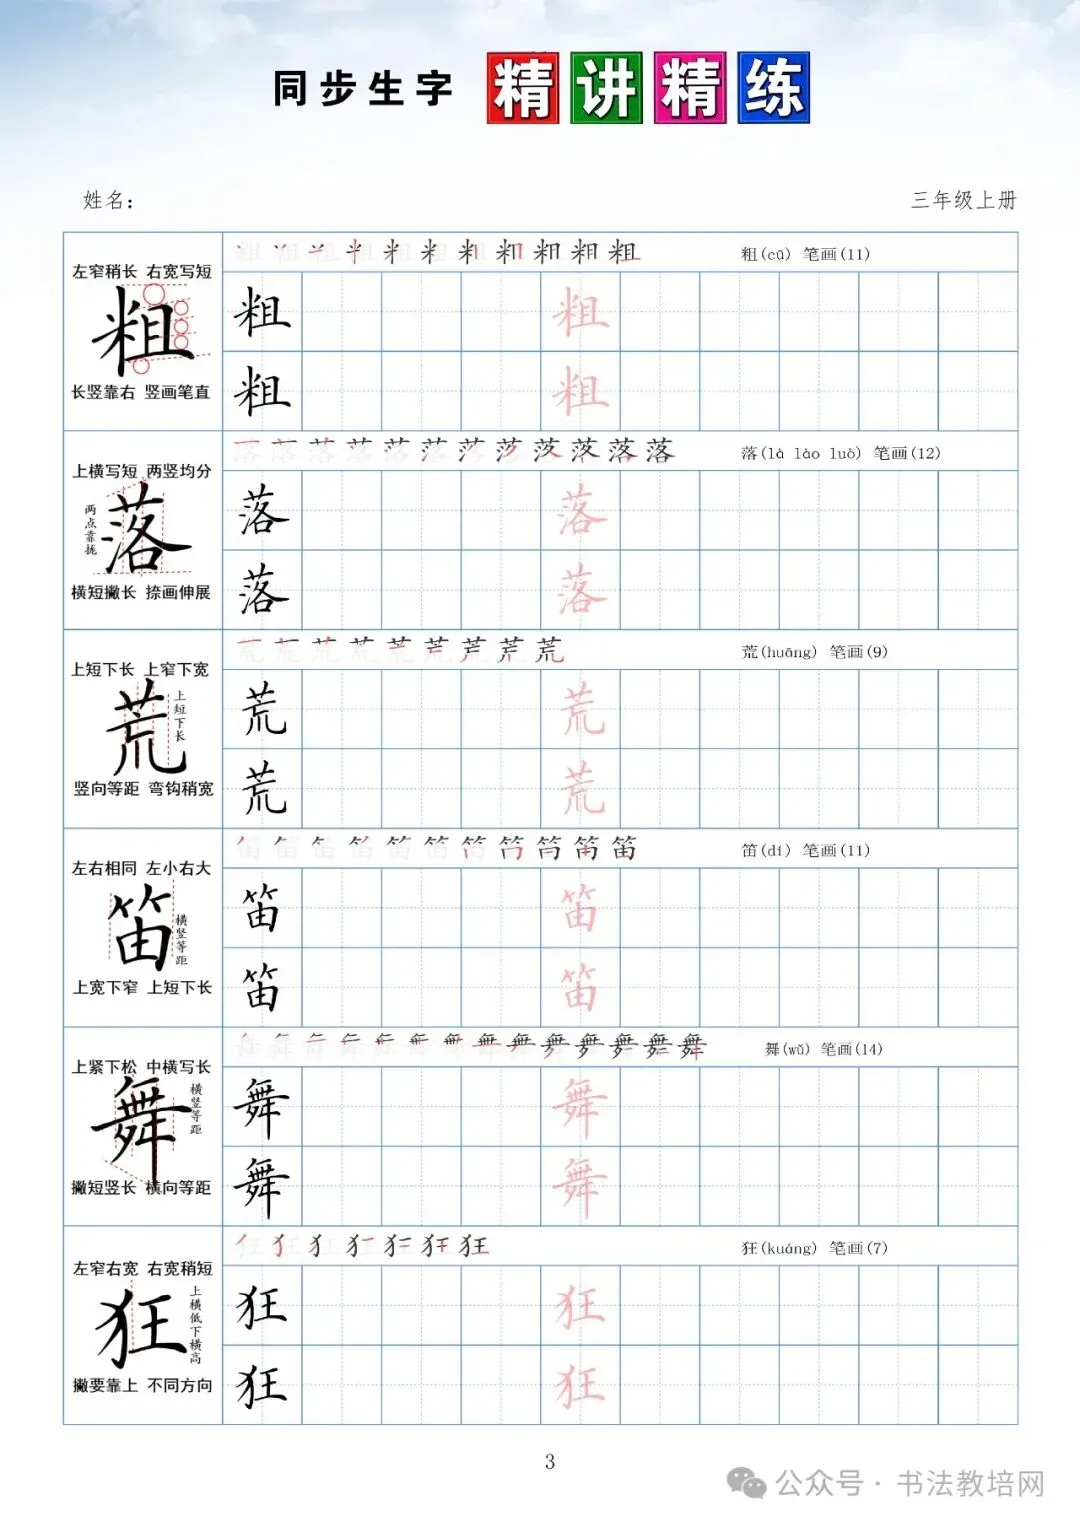 同步生字 精讲精练
姓名：
三年级上册
左窄稍长 右宽写短
粗
长竖靠右 竖画笔直
粗(cū) 笔画(11)
粗 粗
粗 粗
上横写短 两竖均分
两点靠拢
落
横短撇长 捺画伸展
落(là lào luò) 笔画(12)
落 落
落 落
上短下长 上窄下宽
荒
上短下长
竖向等距 弯钩稍宽
荒(huāng) 笔画(9)
荒 荒
荒 荒
左右相同 左小右大
笛
横竖等距
上宽下窄 上短下长
笛(dí) 笔画(11)
笛 笛
笛 笛
上紧下松 中横写长
舞
横竖等距
撇短竖长 横向等距
舞(wǔ) 笔画(14)
舞 舞
舞 舞
左窄右宽 右宽稍短
狂
上横低下横高
撇要靠上 不同方向
狂(kuáng) 笔画(7)
狂 狂
狂 狂
3
公众号·书法教培网